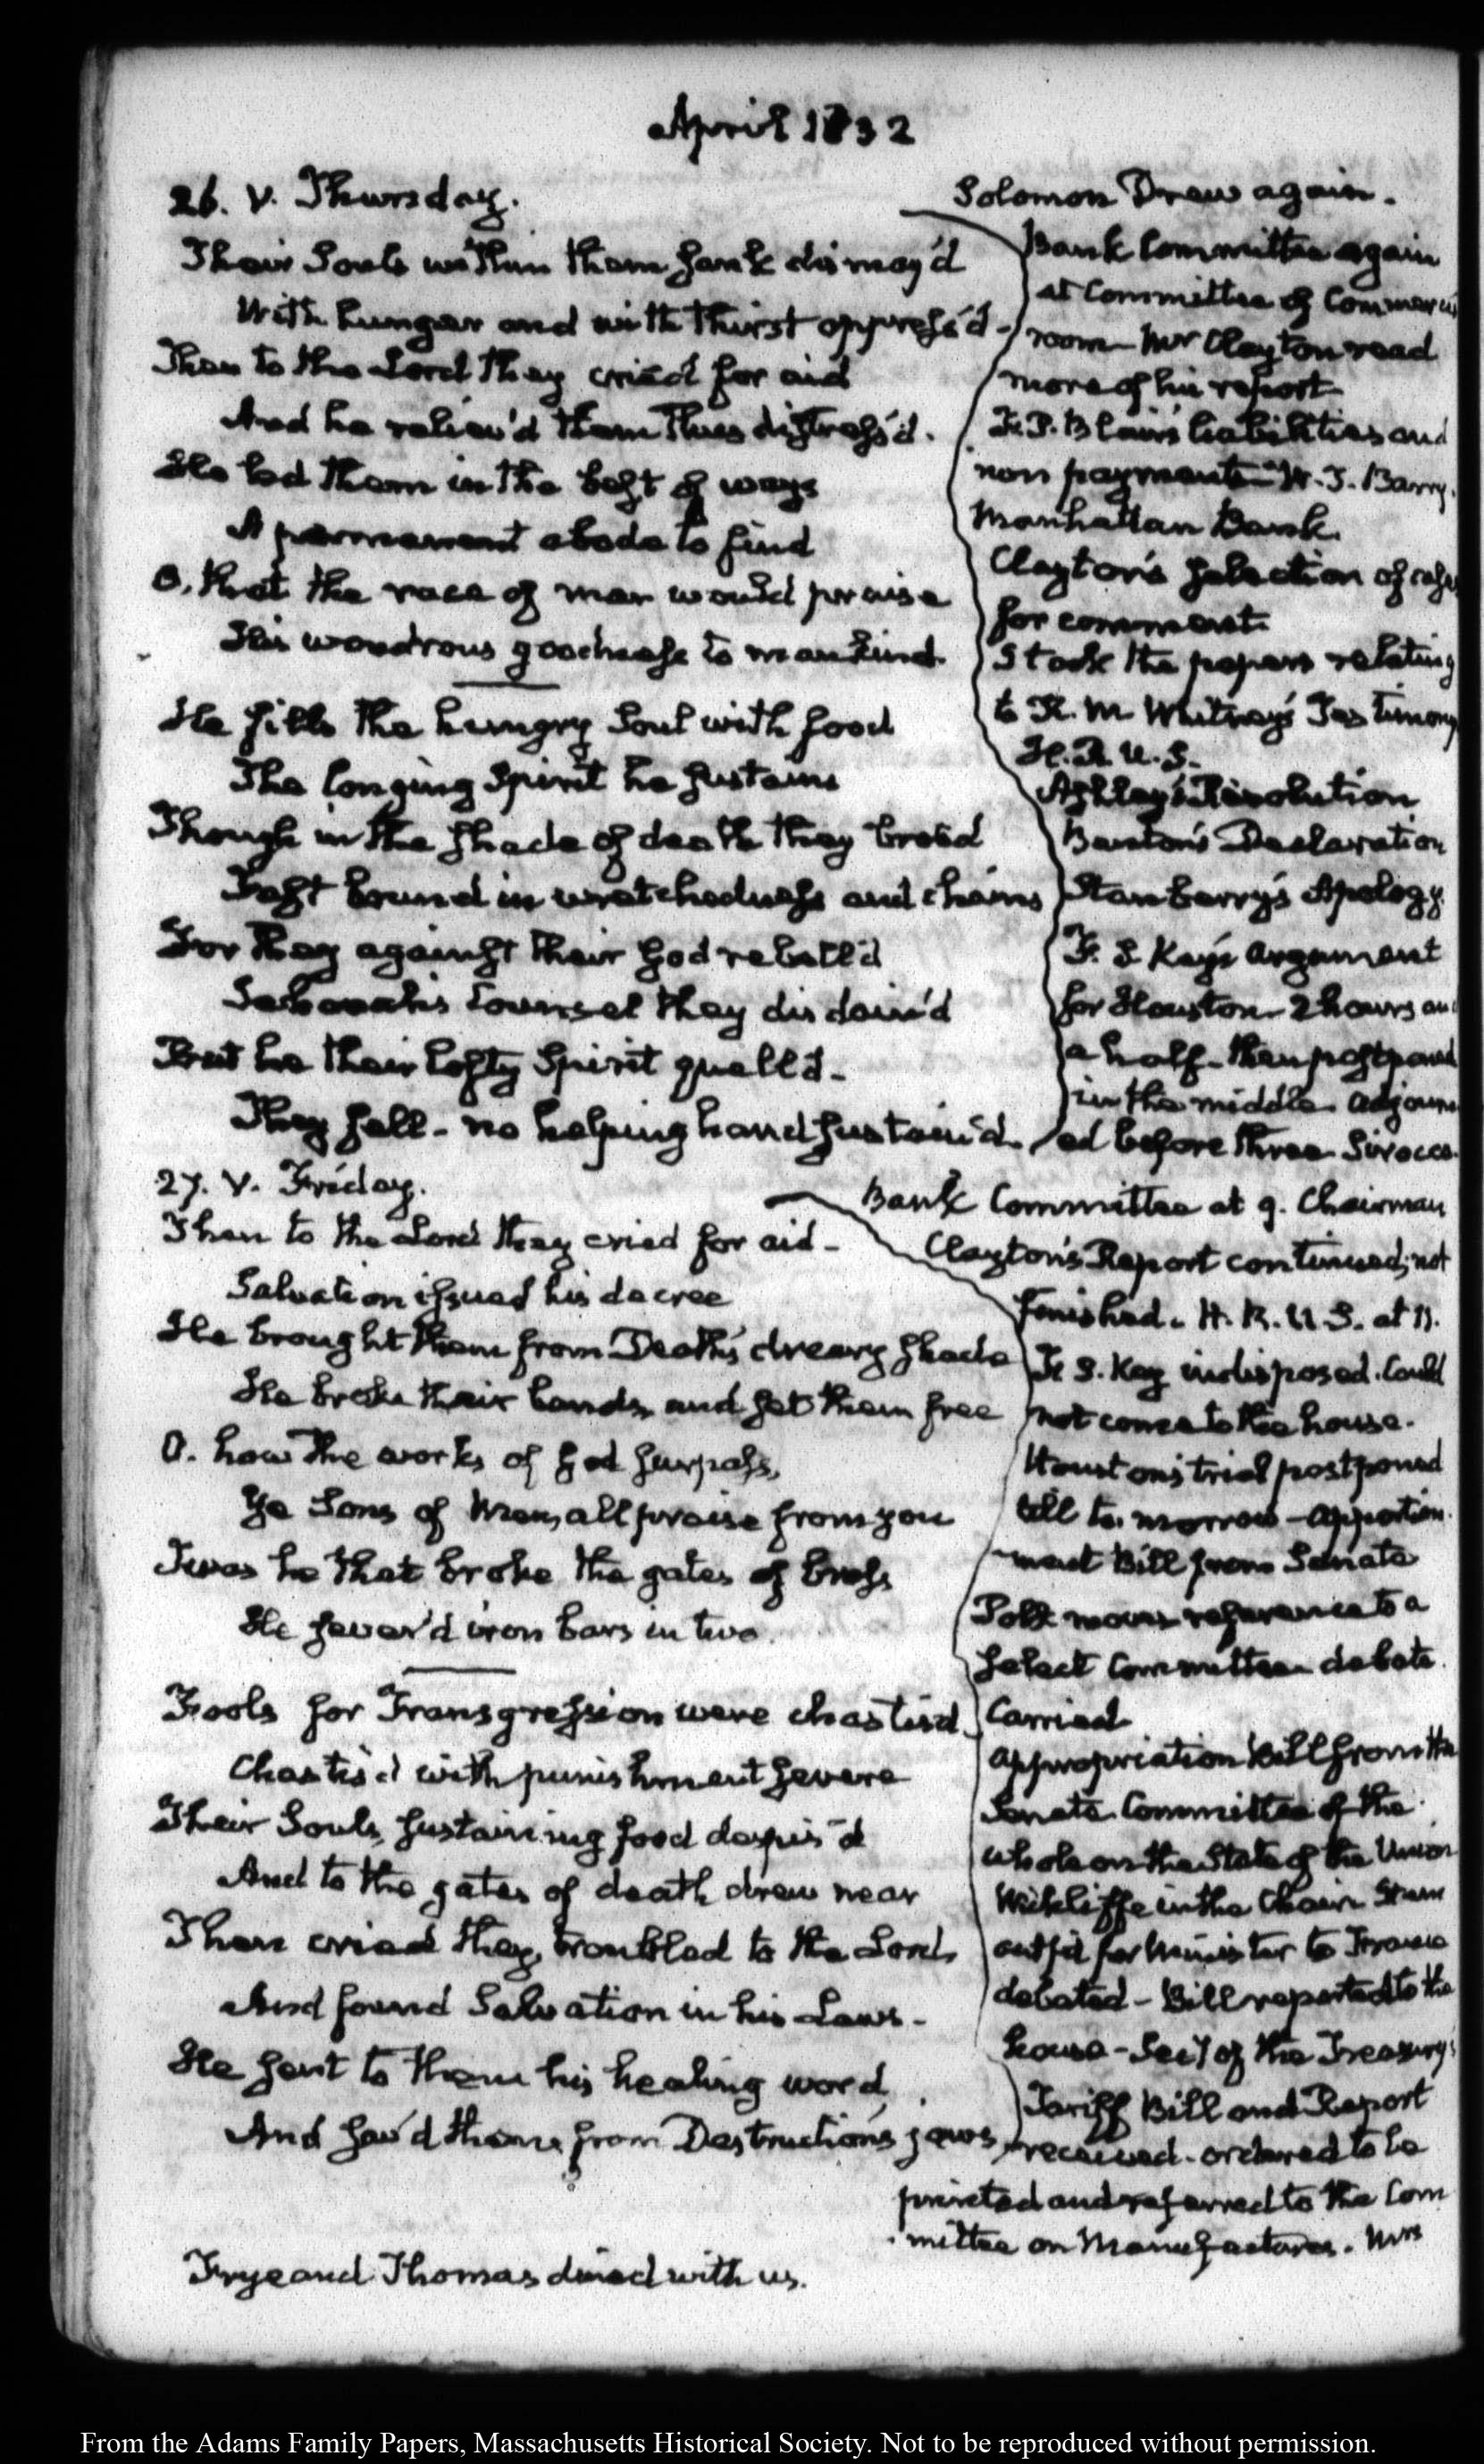 April 1832
26. V. Thursday.
Their Souls within them sank dismay'd
With hunger and with thirst oppress'd -
Then to the Lord they cried for aid
And he reliev'd them thus distress'd.
He led them in the best of ways
A permanent abode to find
O, that the race of man would praise
His wondrous goodness to mankind.
He fills the hungry Soul with food
The longing Spirit he sustains
Though in the shade of death they brood
Fast bound in wretchedness and chains
For they against their God rebell'd
Jehovah's Counsel they disdain'd
But he their lofty Spirit quell'd -
They fell - no helping hand sustain'd.
Solomon Drew again.
Bank Committee again
at Committee of Commerce
room - Mr Clayton read
more of his report
F. P. Blair's liabilities and
non payments - W. T. Barry.
Manhattan Bank.
Clayton's selection of cases
for comment.
I took the papers relating
to R. M. Whitney's Testimony
H. R. U. S.
Ashley's Resolution
Bunton's Declaration
Stanberry's Apology.
F. S. Key's argument
for Houston - 2 hours and
a half - then postponed
in the middle. adjourn
ed before three. Sirocco.
27. V. Friday.
Then to the Lord they cried for aid -
Salvation issued his decree
He brought them from Death's dreary shade
He broke their bands, and set them free
O. how the works of God surpass,
Ye Sons of Men, all praise from you
Twas he that broke the gates of brass
He sever'd iron bars in two.
Fools for Transgression were chastis'd
Chastis'd with punishment severe
Their Souls, sustaining food despis'd
And to the gates of death drew near
Then cried they, troubled to the Lord,
And found Salvation in his Laws -
He sent to them his healing word,
And sav'd them from Destruction's jaws
Bank Committee at 9. Chairman
Clayton's Report continued; not
finished. H. R. U. S. at 11.
F. S. Key indisposed. Could
not come to the house.
Houston's trial postponed
till to-morrow - Apportion
ment Bill from Senate
Polk moves reference to a
select Committee. debate.
Carried
Appropriation Bill from the
Senate. Committee of the
whole on the State of the Union
Wickliffe in the Chair.
outfit for Minister to France
debated - Bill reported to the
house - Secy of the Treasury's
Tariff Bill and Report
received - ordered to be
printed and referred to the Com
mittee on Manufactures. Mrs
Frye and Thomas dined with us.
From the Adams Family Papers, Massachusetts Historical Society. Not to be reproduced without permission.